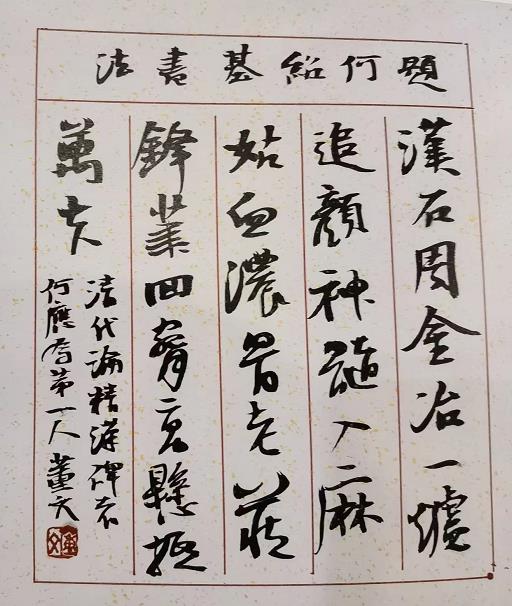 題何紹基書法
漢石周金冶一爐
追顏神髓入麻
姑血濃骨老藏
鋒業回高懸抵
萬夫
清代論精漢碑者
何應為第一人 董文